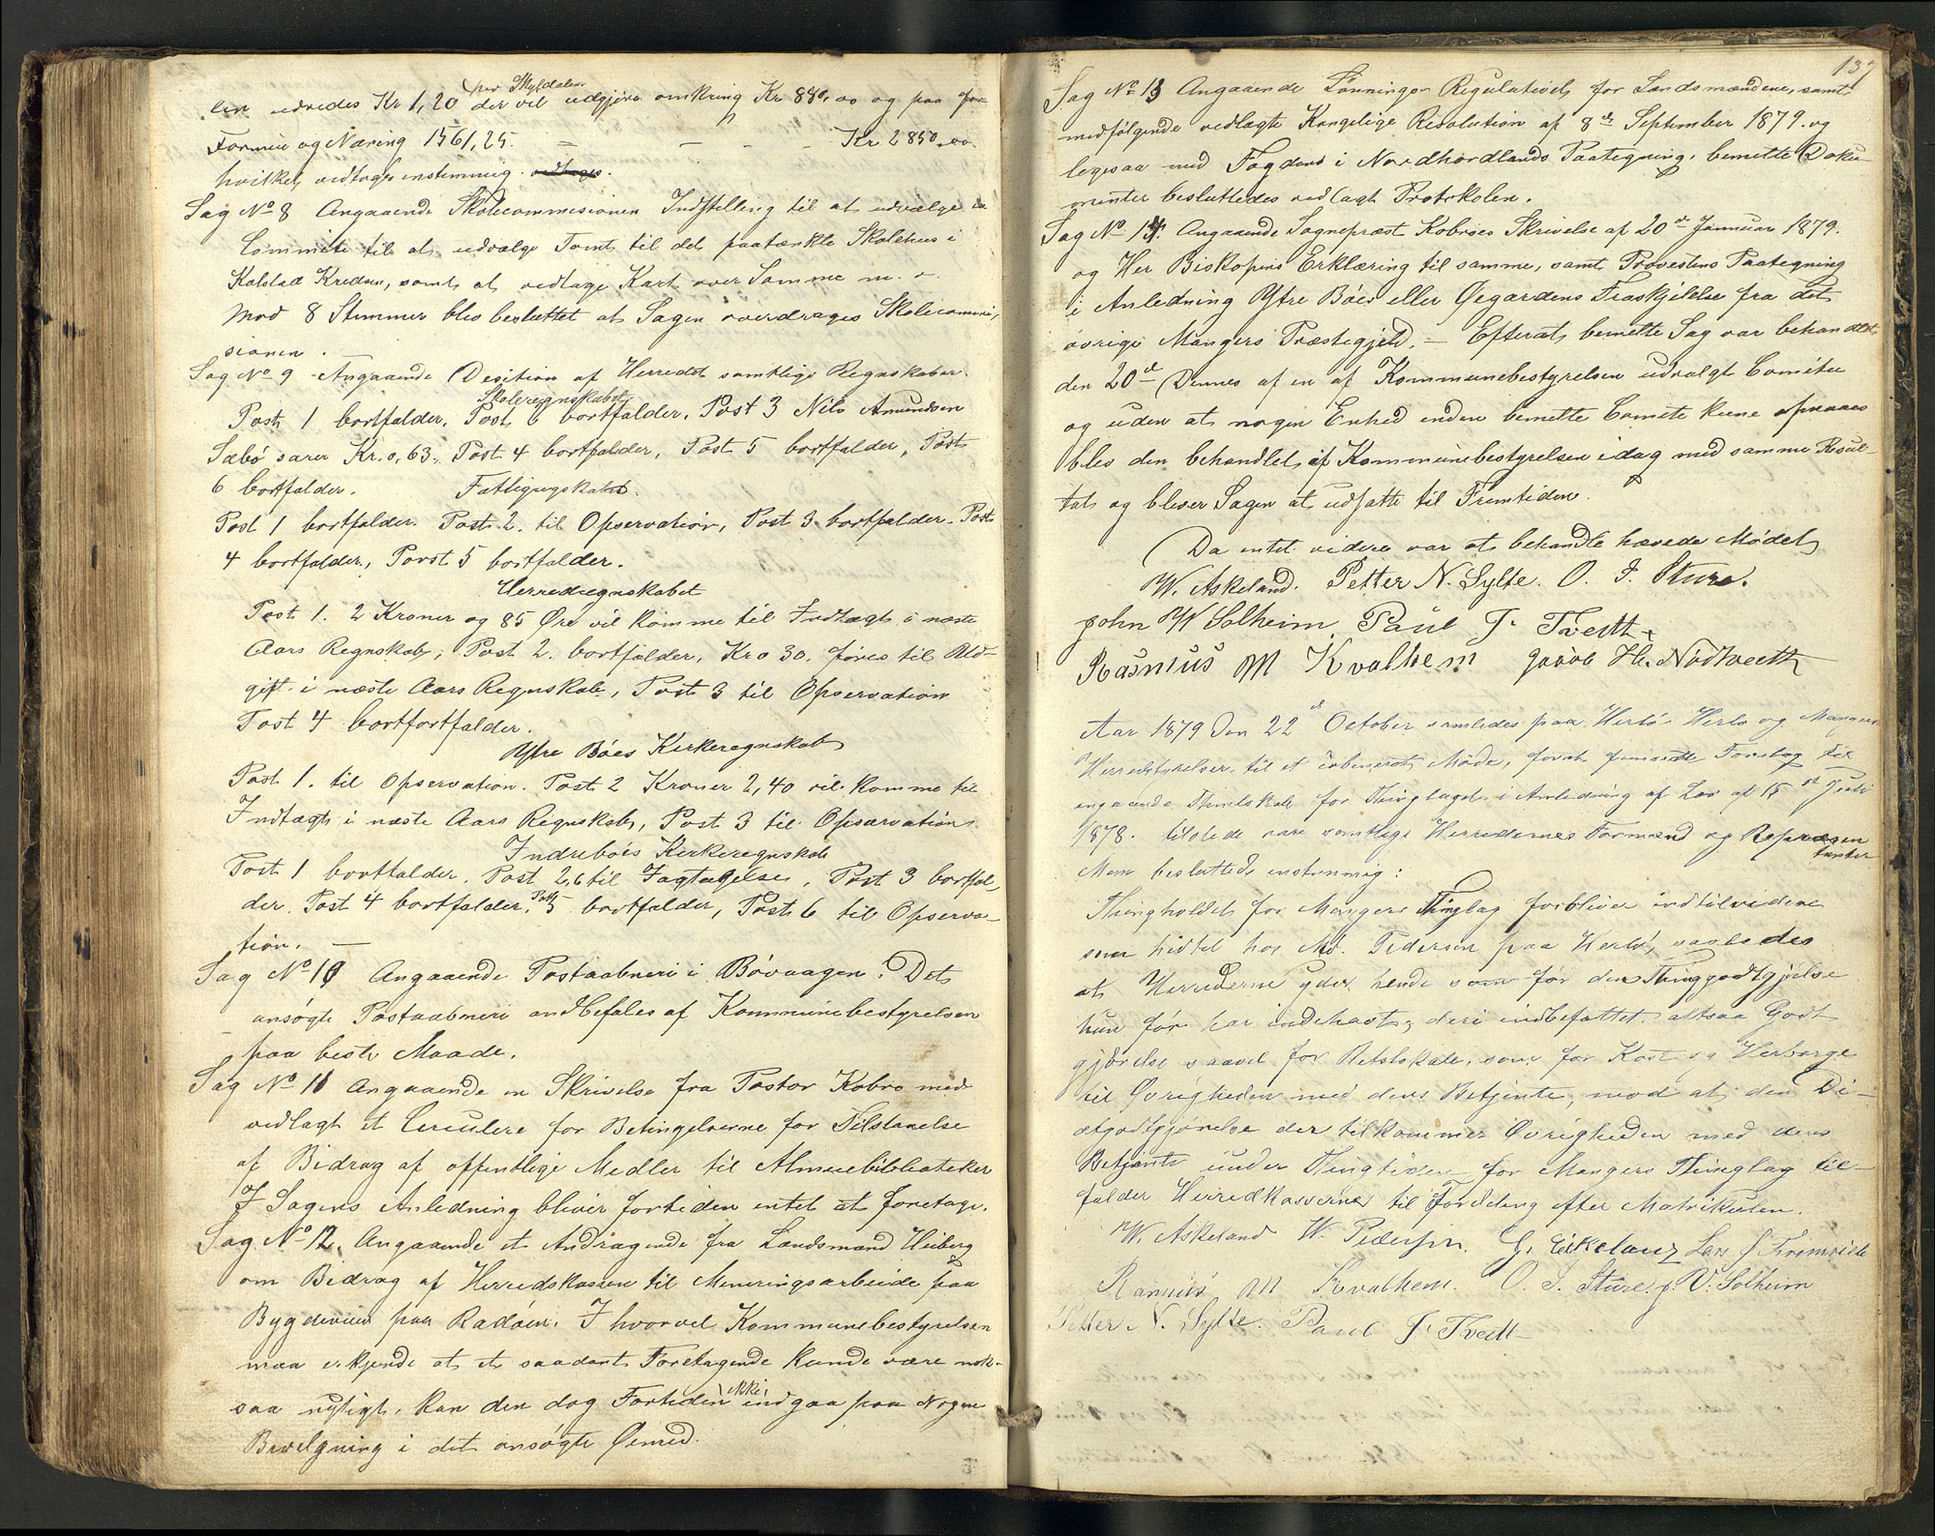 len udredes Kr 1,20 per Skyldaler der vil udgjøre omkring Kr 880,00 og paa for
Formue og Næring 1561,25. = - - - Kr 2850,00.
hvilket vedtoges enstemmig. vedtoges.
Sag No 8 Angaaende Skolecommisionen Indstilling til at udvælge en
Commite til at udvælge Tomt til det paatænkte Skolehus i
Kolstad Kredsen, samt at vedtage Kart over Samme m. v
Mod 8 Stemmer blev besluttet at Sagen overdrages Skolecommi-
sionen.
Sag No 9 Angaaende Desition af Herredet samtlige Regnskaber.
Skoleregnskabet
Post 1 bortfalder. Post 6 bortfalder. Post 3 Nils Amundsen
Sæbø svarer Kr. 0,63. Post 4 bortfalder, Post 5 bortfalder, Post
6 bortfalder. Fattigregnskabet.
Post 1 bortfalder. Post 2. til Opservation, Post 3 bortfalder. Post
4 bortfalder, Porst 5 bortfalder.
Herredregnskabet
Post 1. 2 Kroner og 85 Øre vil komme til Indtægt i næste
Aars Regnskab, Post 2. bortfalder, Kr 0 30. føres til Ud-
gift i næste Aars Regnskab, Post 3 til Opservation
Post 4 bortfortfalder.
Ytre Bøes Kirkeregnskab
Post 1. til Opservation. Post 2 Kroner 2,40 vil komme til
Indtægt i næste Aars Regnskab, Post 3 til Opservation
Indrebøes Kirkeregnskab
Post 1 bortfalder. Post 2, til Iagtagelse, Post 3 bortfal-
der. Post 4 bortfalder. Post 5 bortfalder, Post 6 til Opserva-
tion. —
Sag No 10 Angaaende Postaabneri i Bøvaagen. Det
ansøgte Postaabneri andbefales af Kommunebestyrelsen
paa beste Maade.
Sag No 11 Angaaende en Skrivelse fra Pastor Kobro med
vedlagt et Cerculere for Betingelserne for Tilstaaelse
af Bidrag af offentlige Medler til Almuebibliotheker
I Sagens Anledning bliver fortiden intet at foretage.
Sag No 12. Angaaende et Andragende fra Landsmand Heiberg
om Bidrag af Herredskassen til Meneringsarbeide paa
Bygdeveien paa Radøen. I hvorvel Kommunebestyrelsen
maa erkjende at et saadant Foretagende kunde være nok-
saa nytigt, kan den dog Fortiden ikke indgaa paa Nogen
Bevelgning i det ansøgte Øiemed.
137
Sag No 13 Angaaende Lønnings Regulativet for Lændsmændene, samt
medfølgende vedlagte Kongelige Resolution af 8de September 1879. og
legesaa med Fogdens i Nordhordlands Paategning. bemelte Doku
menter besluttedes vedlagt Protokolen.
Sag No 14. Angaaende Sognepræst Kobroes Skrivelse af 20de Januar 1879.
og Her Biskopens Erklæring til samme, samt Provestens Paategning
i Anledning Ytre Bøes eller Øegardens Fraskjilelse fra det
øvrige Mangers Præstegjeld. — Efterat bemelte Sag var behandlet
den 20de Dennes af en af Kommunebestyrelsen udvalgt Comitee
og uden at nogen Enhed inden bemelte Comite kune opnaaes
blev den behandlet af Kommunebestyrelsen idag med samme Resul-
tat og bliver Sagen at udsætte til Fremtiden.
Da intet videre var at behandle hævede Mødet
W. Askeland. Petter N. Sylte. O. I. Sture.
John W Solheim. Paul J. Tvedt
Rasmus M Kvalhem Jacob H. Nødtvedt
Aar 1879 Den 22de October samledes paa Herlø Herlø og Mangers
Herredstyrelser til et Møde, forat Forslag til
angaaende Thinglokale for Thinglaget i Anledning af Lov af 15de Juni
1878. tilstede vare samtlige Herredernes Formænd og Repræsen
tanter
Man besluttede enstemmig:
Thingholdet for Mangers Thinglag forbliver indtilvidere
som hidtil hos Md. Pedersen paa Herlø, saaledes
at Herrederne yder hende som før den Thinggodtgjørelse
hun før har indehavt, deri indbefattet altsaa Godt
gjørelse saavel for Retslokale, som for Kost og Herberge
til Øvrigheden med dens Betjente, mod at den Di-
ætgodtgjørelse der tilkommer Øvrigheden med dens
Betjente under Thingtiden for Mangers Thinglag til-
falder Herredkasserne til Fordeling efter Matrikulen.
W. Askeland W. Pedersen. G. Eikeland Lars J Fremseide
Rasmus M Kvalhem. O. I. Sture. J. V. Solheim
Petter N. Sylte. Paul J. Tvedt